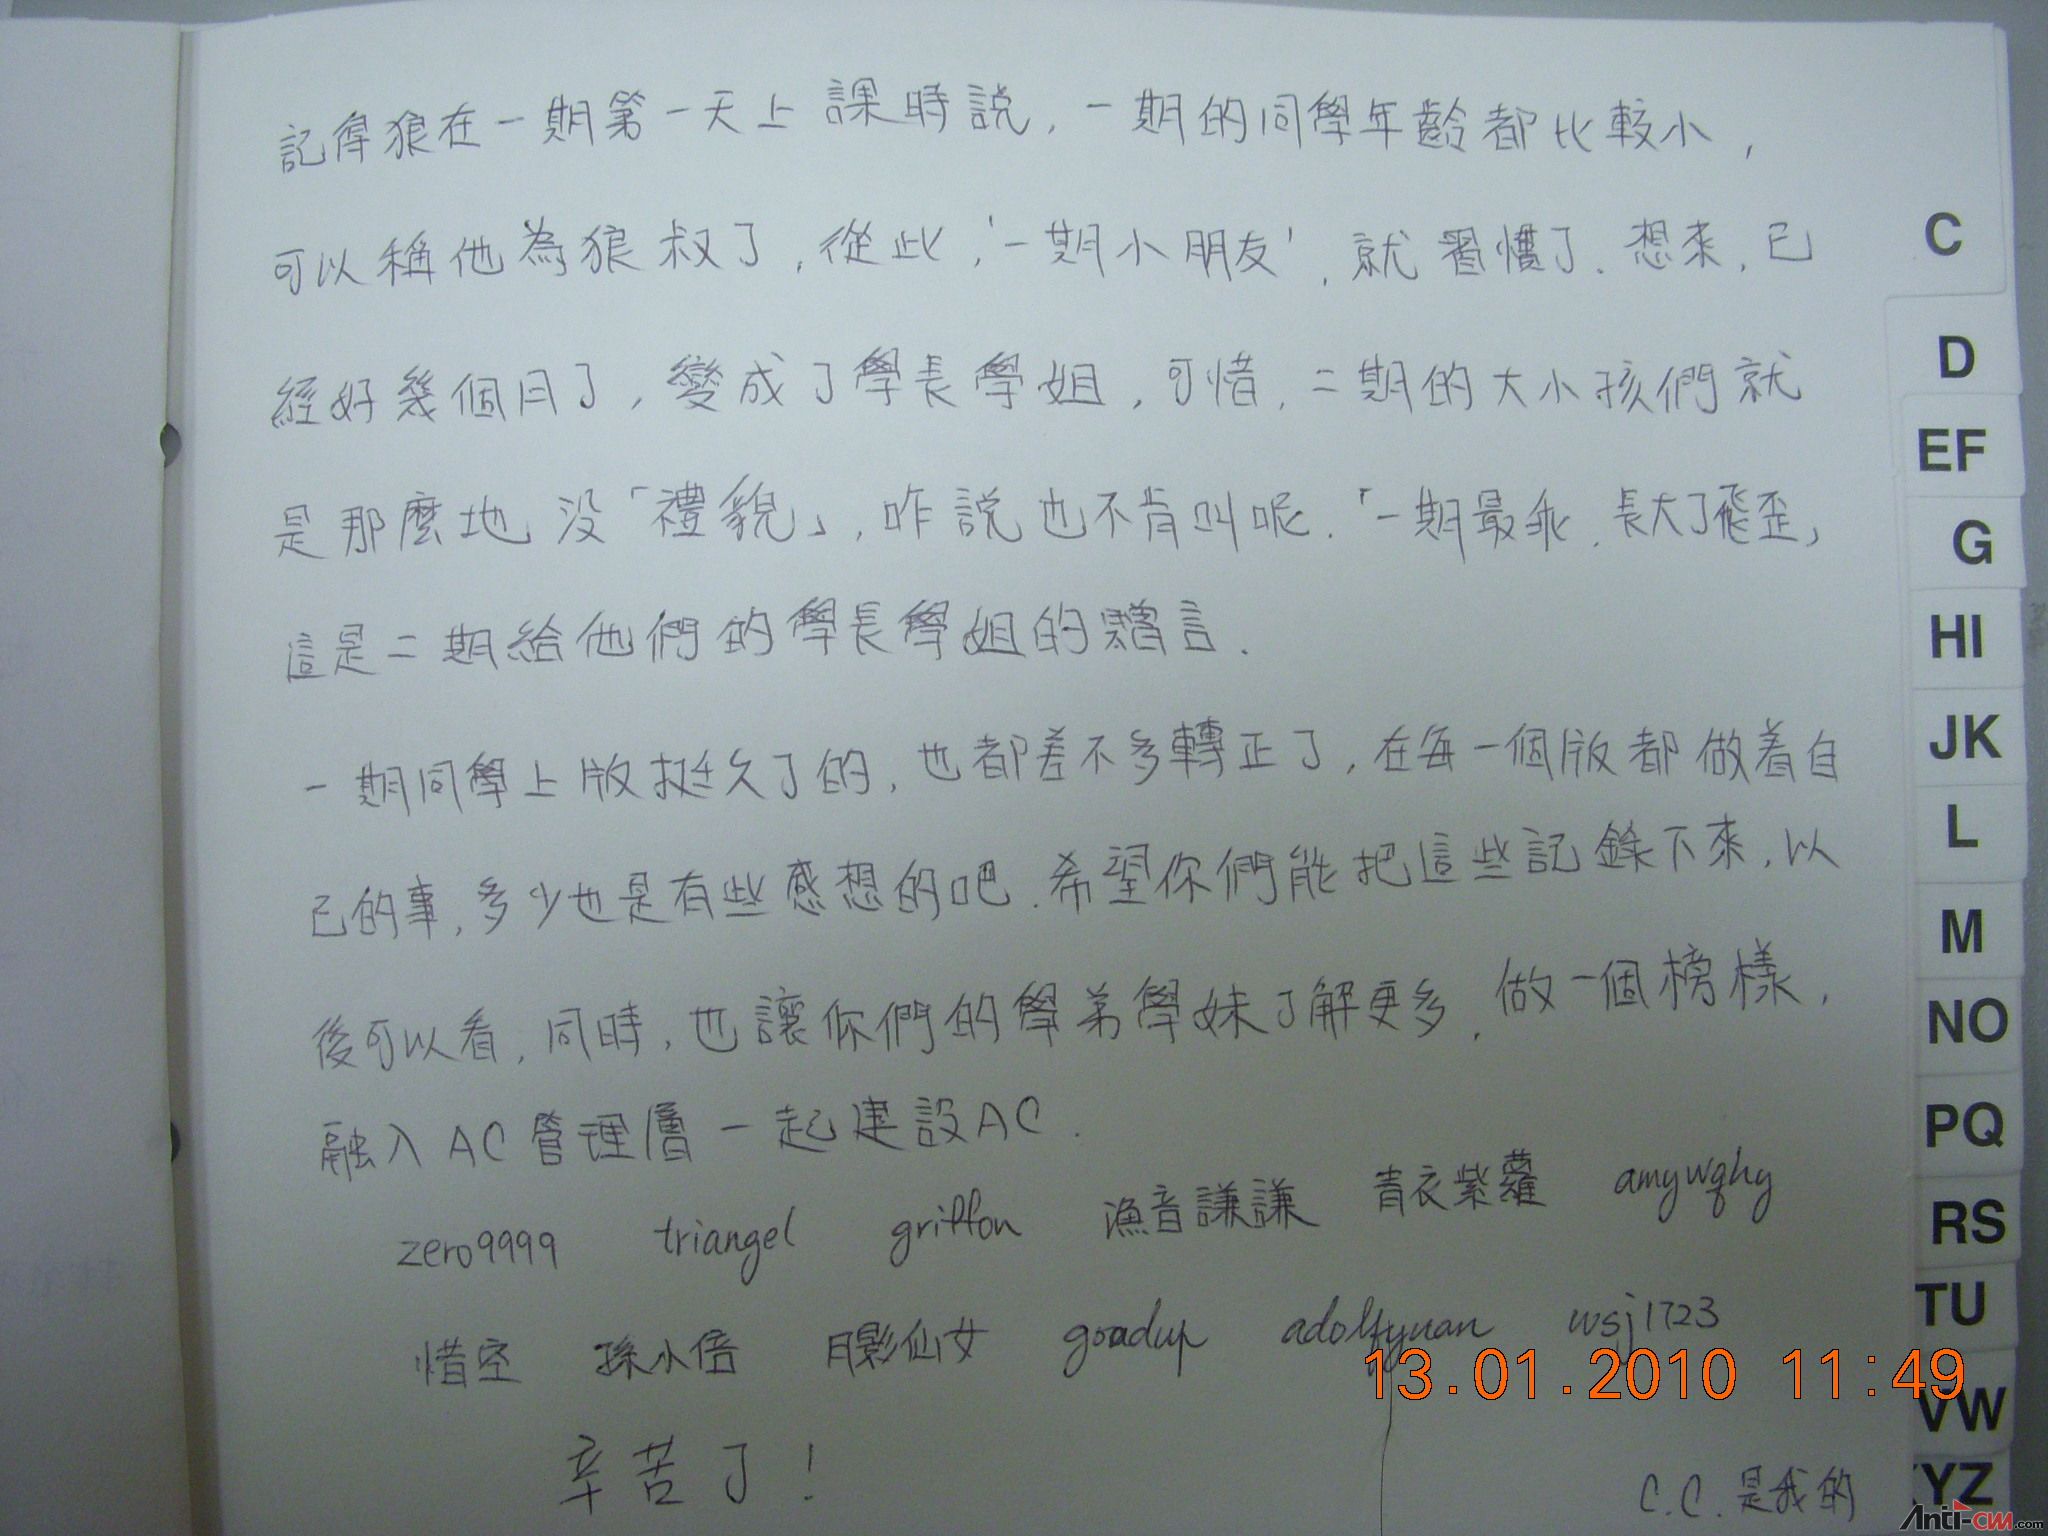 記得狼在一期第一天上課時説，一期的同學年齡都比較小，
可以稱他為狼叔了，從此，'一期小朋友'，就習慣了．想來，已
經好幾個月了，變成了學長學姐，可惜，二期的大小孩們就
是那麼地没「禮貌」，咋説也不肯叫呢．「一期最乖．長大了飛歪」
這是二期給他們的學長學姐的贈言．
一期同學上版挺久了的，也都差不多轉正了，在每一個版都做着自
己的事，多少也是有些感想的吧．希望你們能把這些記錄下來，以
後可以看，同時，也讓你們的學弟學妹了解更多，做一個榜樣，
融入AC管理層一起建設AC．
zero9999 triangel griffon 漁音謙謙 青衣紫蘿 amywqhy
惜空 孫小倍 月影仙女 goodup adolfyuan wsj1723
辛苦了！
C.C.是我的
13.01.2010 11:49
C
D
EF
G
HI
JK
L
M
NO
PQ
RS
TU
VW
YZ
Anti-CM.com